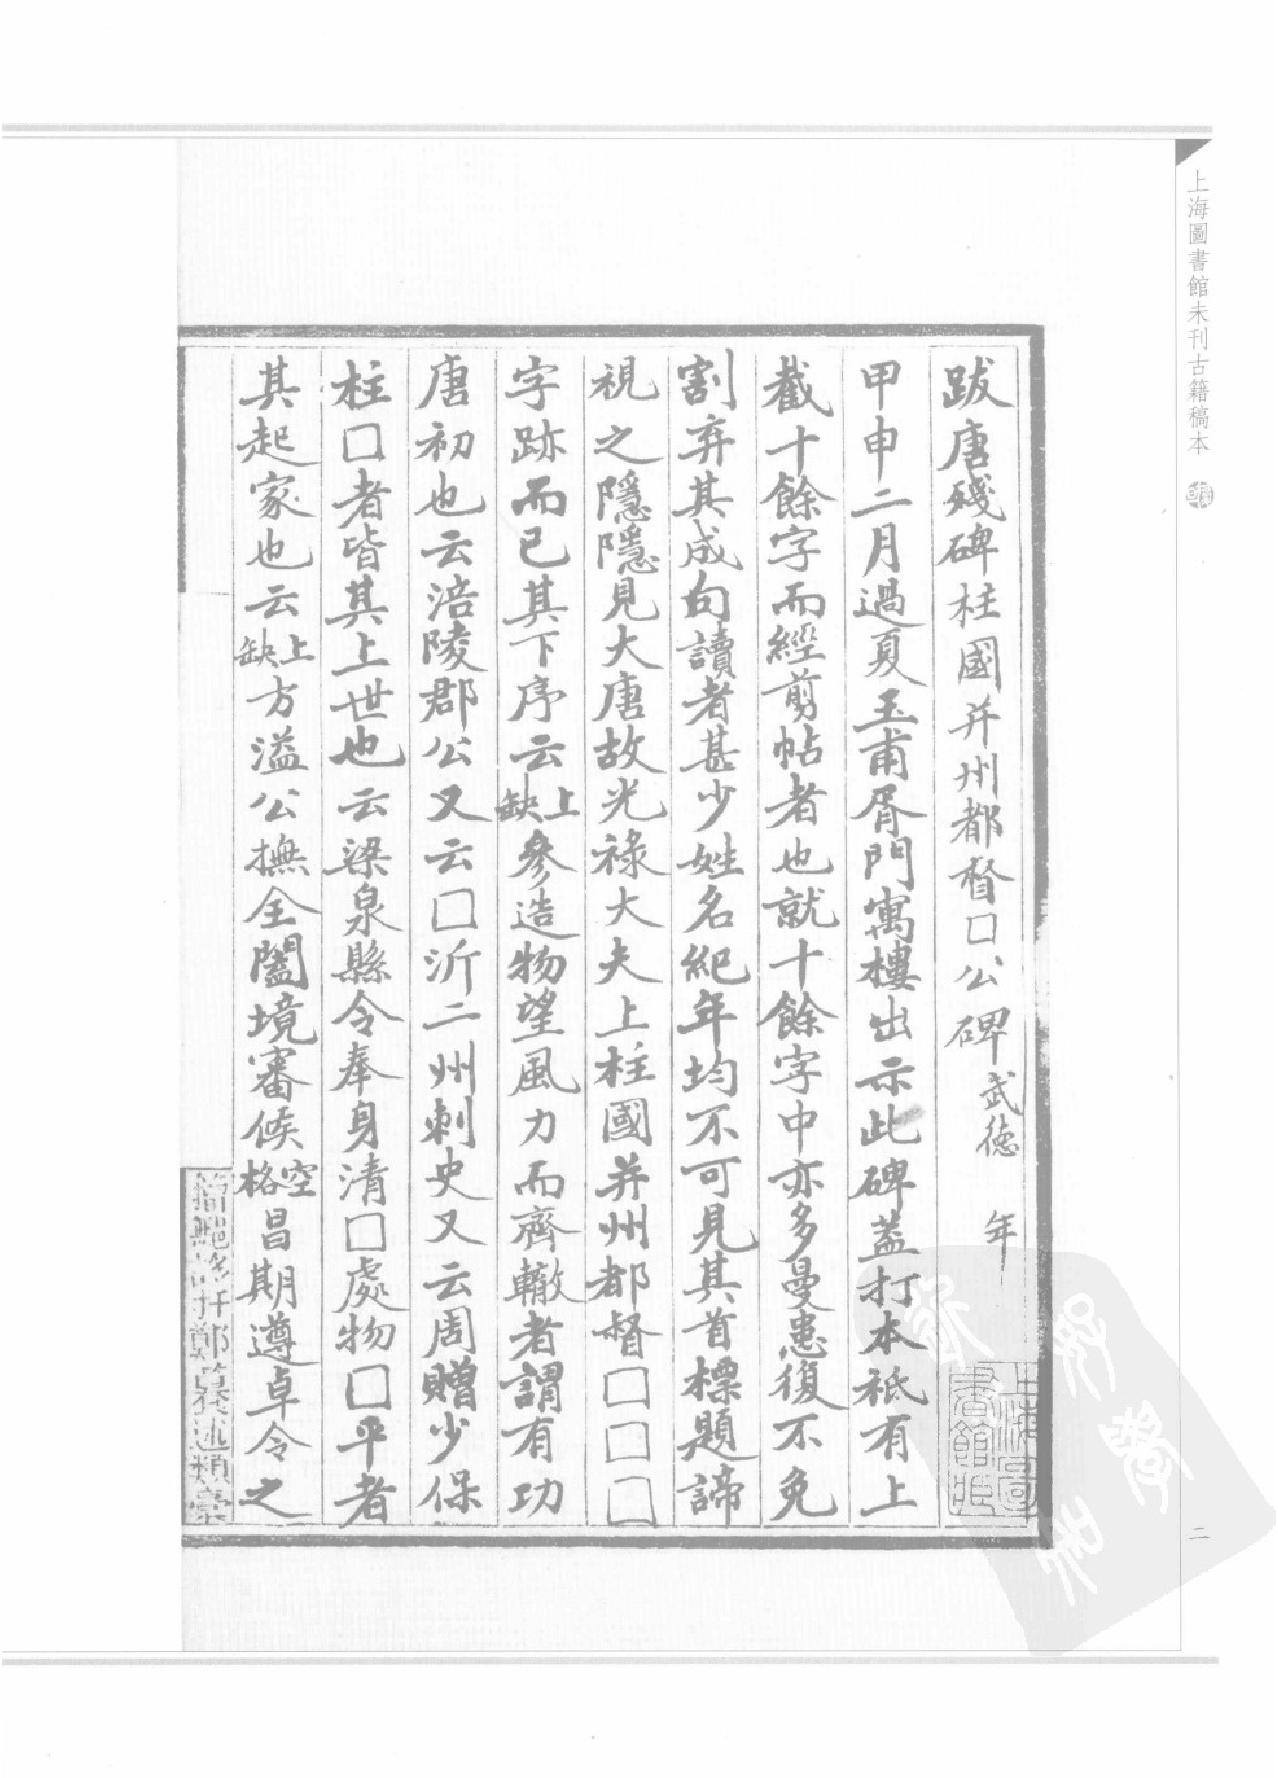 上海圖書館未刊古籍稿本
二
跋唐殘碑柱國并州都督□公碑武德 年
甲申二月過夏玉甫胥門寓樓出示此碑蓋打本祗有上
截十餘字而經剪帖者也就十餘字中亦多曼患復不免
割弃其成句讀者甚少姓名紀年均不可見其首標題諦
視之隱隱見大唐故光祿大夫上柱國并州都督□□□
字跡而已其下序云上缺參造物望風力而齊轍者謂有功
唐初也云涪陵郡公又云□沂二州刺史又云周贈少保
柱□者皆其上世也云梁泉縣令奉身清□處物□平者
其起家也云上缺方溢公撫全闔境審候空格昌期遵卓令之
上海圖書館藏